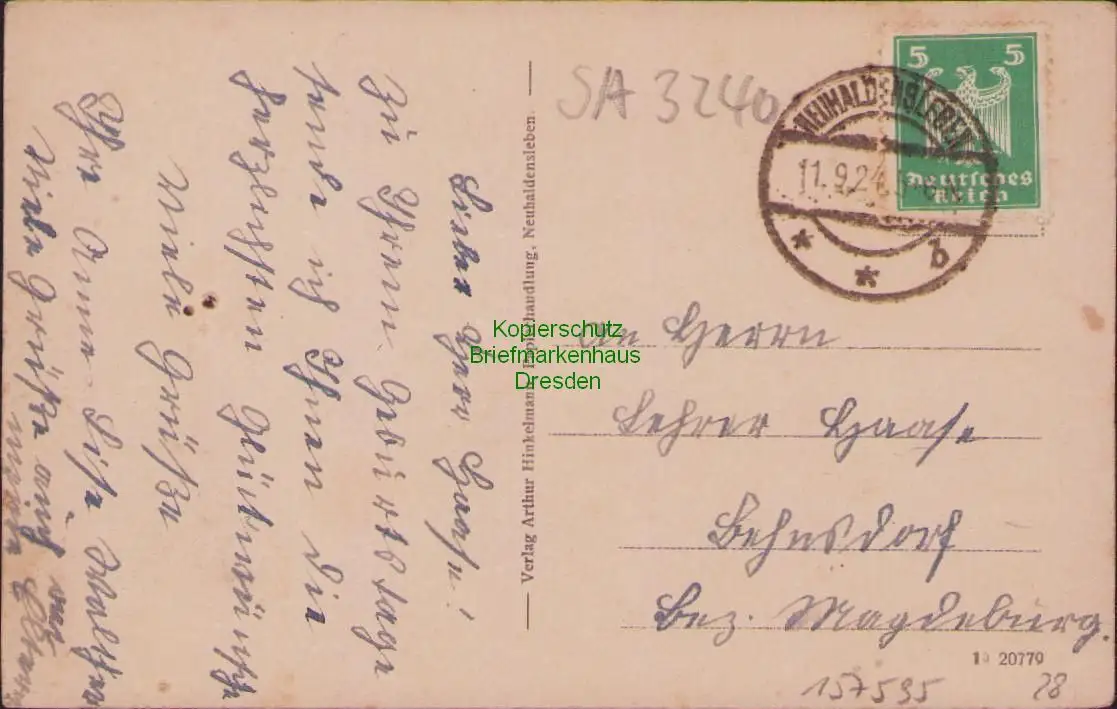 Lieber Herr Haase!
Zu Ihrem Geburtstage
sende ich Ihnen die
herzlichsten Glückwünsche
Viele Grüße
Ihre Anna-Lise
Viele Grüße auch von
meinen Eltern
Verlag Arthur Hinkelmann, Papierhandlung, Neuhaldensleben.
SA 3240
NEUHALDENSLEBEN
11.9.24
* * b
5 5
Deutsches
Reich
Kopierschutz
Briefmarkenhaus
Dresden
An Herrn
Lehrer Haase
Behnsdorf
Bez. Magdeburg.
20779
157595 28